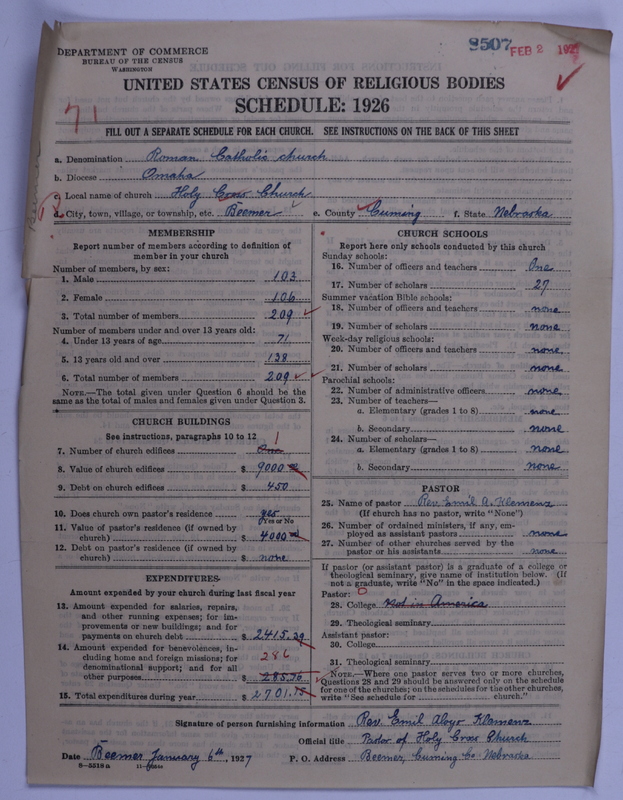 8507 FEB 2 192
DEPARTMENT OF COMMERCE
BUREAU OF THE CENSUS
WASHINGTON
UNITED STATES CENSUS OF RELIGIOUS BODIES
SCHEDULE: 1926
71
FILL OUT A SEPARATE SCHEDULE FOR EACH CHURCH. SEE INSTRUCTIONS ON THE BACK OF THIS SHEET
a. Denomination Roman Catholic church
b. Diocese Omaha
c. Local name of church Holy Cross Church
d. City, town, village, or township, etc. Beemer e. County Cuming f. State Nebraska
Beemer
MEMBERSHIP
Report number of members according to definition of
member in your church
Number of members, by sex:
1. Male 103
2. Female 106
3. Total number of members 209
Number of members under and over 13 years old:
4. Under 13 years of age 71
5. 13 years old and over 138
6. Total number of members 209
NOTE.—The total given under Question 6 should be
same as the total of males and females given under Question 3.
CHURCH BUILDINGS
See instructions, paragraphs 10 to 12
1
7. Number of church edifices One
8. Value of church edifices $ 9000
9. Debt on church edifices $ 450
10. Does church own pastor's residence? yes
Yes or No
11. Value of pastor's residence (if owned by
church) $ 4000
12. Debt on pastor's residence (if owned by
church) $ none
EXPENDITURES
Amount expended by your church during last fiscal year
13. Amount expended for salaries, repairs,
and other running expenses; for im-
provements or new buildings; and for
payments on church debt $ 2415.39
14. Amount expended for benevolences, in-
cluding home and foreign missions; for 286
denominational support; and for all
other purposes $ 285.76
15. Total expenditures during year $ 2701.15
CHURCH SCHOOLS
Report here only schools conducted by this church
Sunday schools:
16. Number of officers and teachers One
17. Number of scholars 27
Summer vacation Bible schools:
18. Number of officers and teachers none
19. Number of scholars none
Week-day religious schools:
20. Number of officers and teachers none
21. Number of scholars none
Parochial schools:
22. Number of administrative officers none
23. Number of teachers—
a. Elementary (grades 1 to 8) none
b. Secondary none
24. Number of scholars—
a. Elementary (grades 1 to 8) none
b. Secondary none
PASTOR
25. Name of pastor Rev. Emil A. Klemenz
(If church has no pastor, write "None")
26. Number of ordained ministers, if any, em-
ployed as assistant pastors none
27. Number of other churches served by the
pastor or his assistants none
If pastor (or assistant pastor) is a graduate of a college or
theological seminary, give name of institution below. (If
not a graduate, write "No" in the space indicated.)
Pastor: 0
28. College Not in America
29. Theological seminary
Assistant pastor:
30. College
31. Theological seminary
NOTE.—Where one pastor serves two or more churches,
Questions 28 and 29 should be answered only on the schedule
for one of the churches; on the schedules for the other churches,
write "See schedule for church."
Signature of person furnishing information Rev. Emil Aloys Klemenz
Official title Pastor of Holy Cross Church
Date Beemer January 6th, 1927 P. O. Address Beemer, Cuming Co. Nebraska
8—5518a